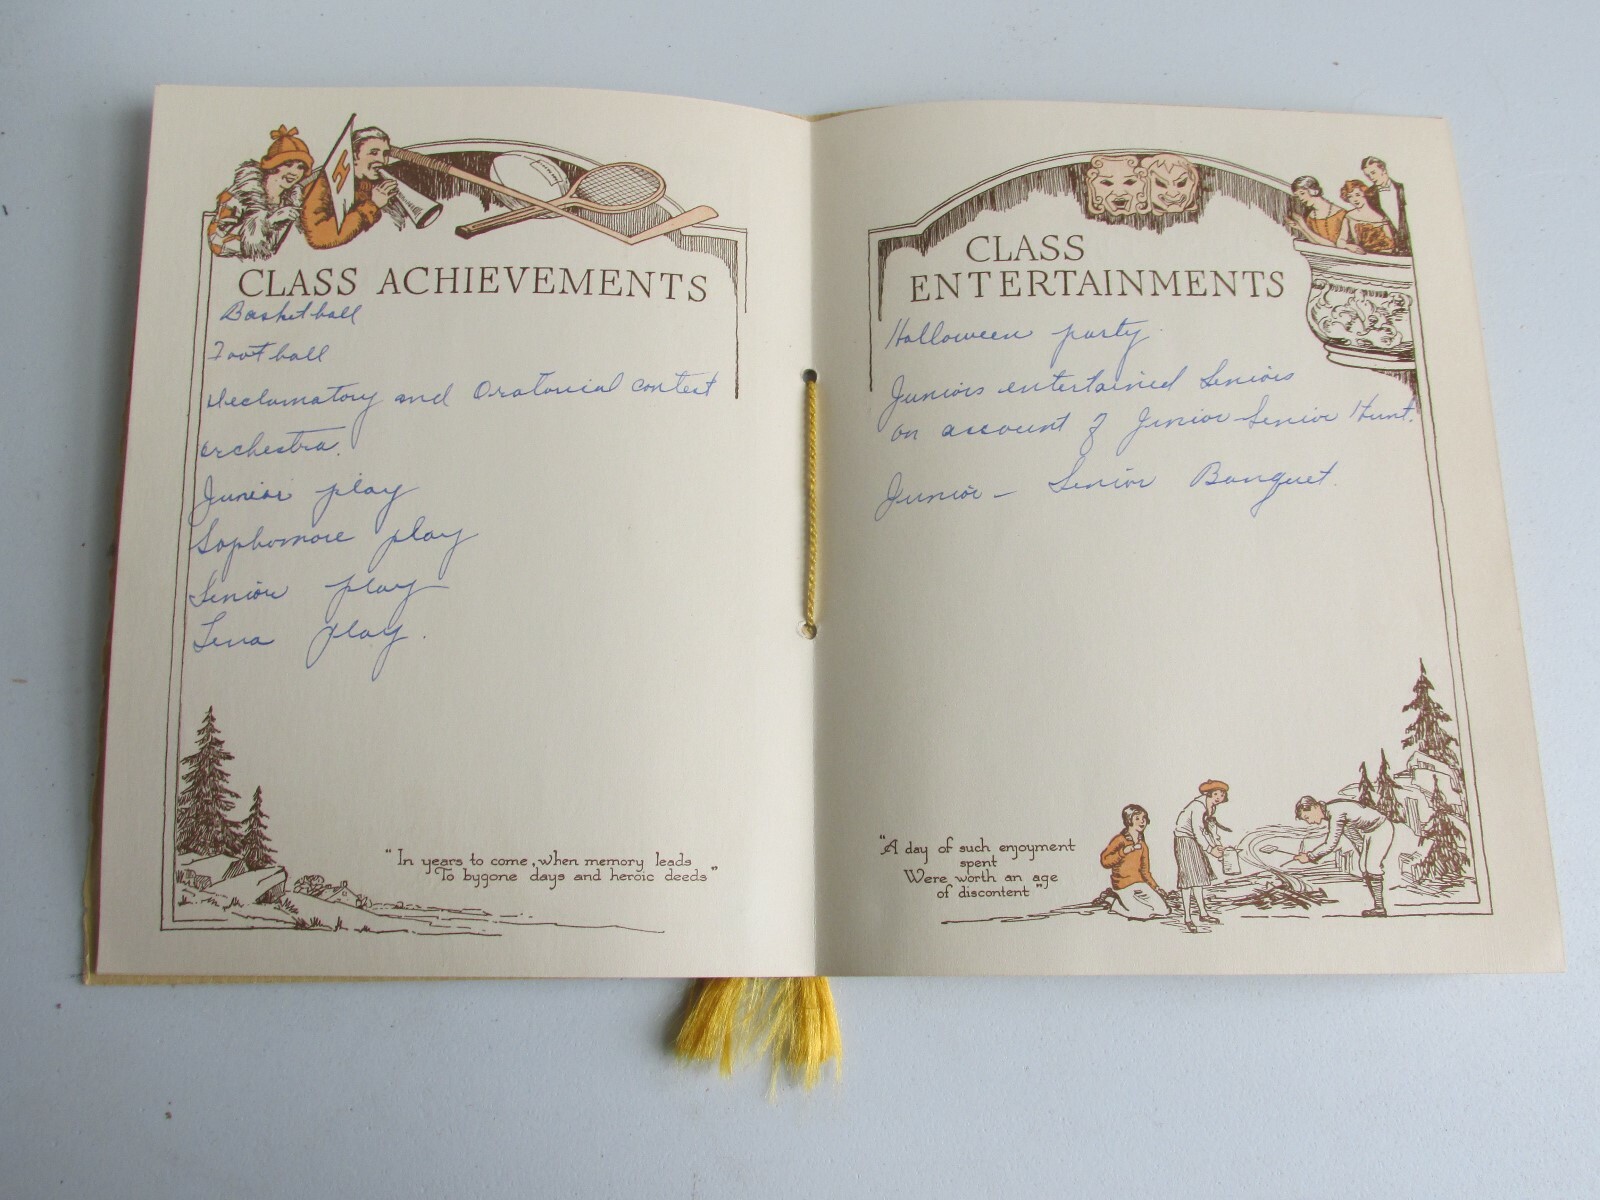 H
CLASS ACHIEVEMENTS
Basketball
Football
Declamatory and Oratorical contest
orchestra.
Junior play
Sophomore play
Senior play
play.
"In years to come, when memory leads
To bygone days and heroic deeds"
CLASS
ENTERTAINMENTS
Halloween party.
Juniors entertained Seniors
on account of Junior-Senior Hunt.
Junior - Senior Banquet.
"A day of such enjoyment
spent
Were worth an age
of discontent"